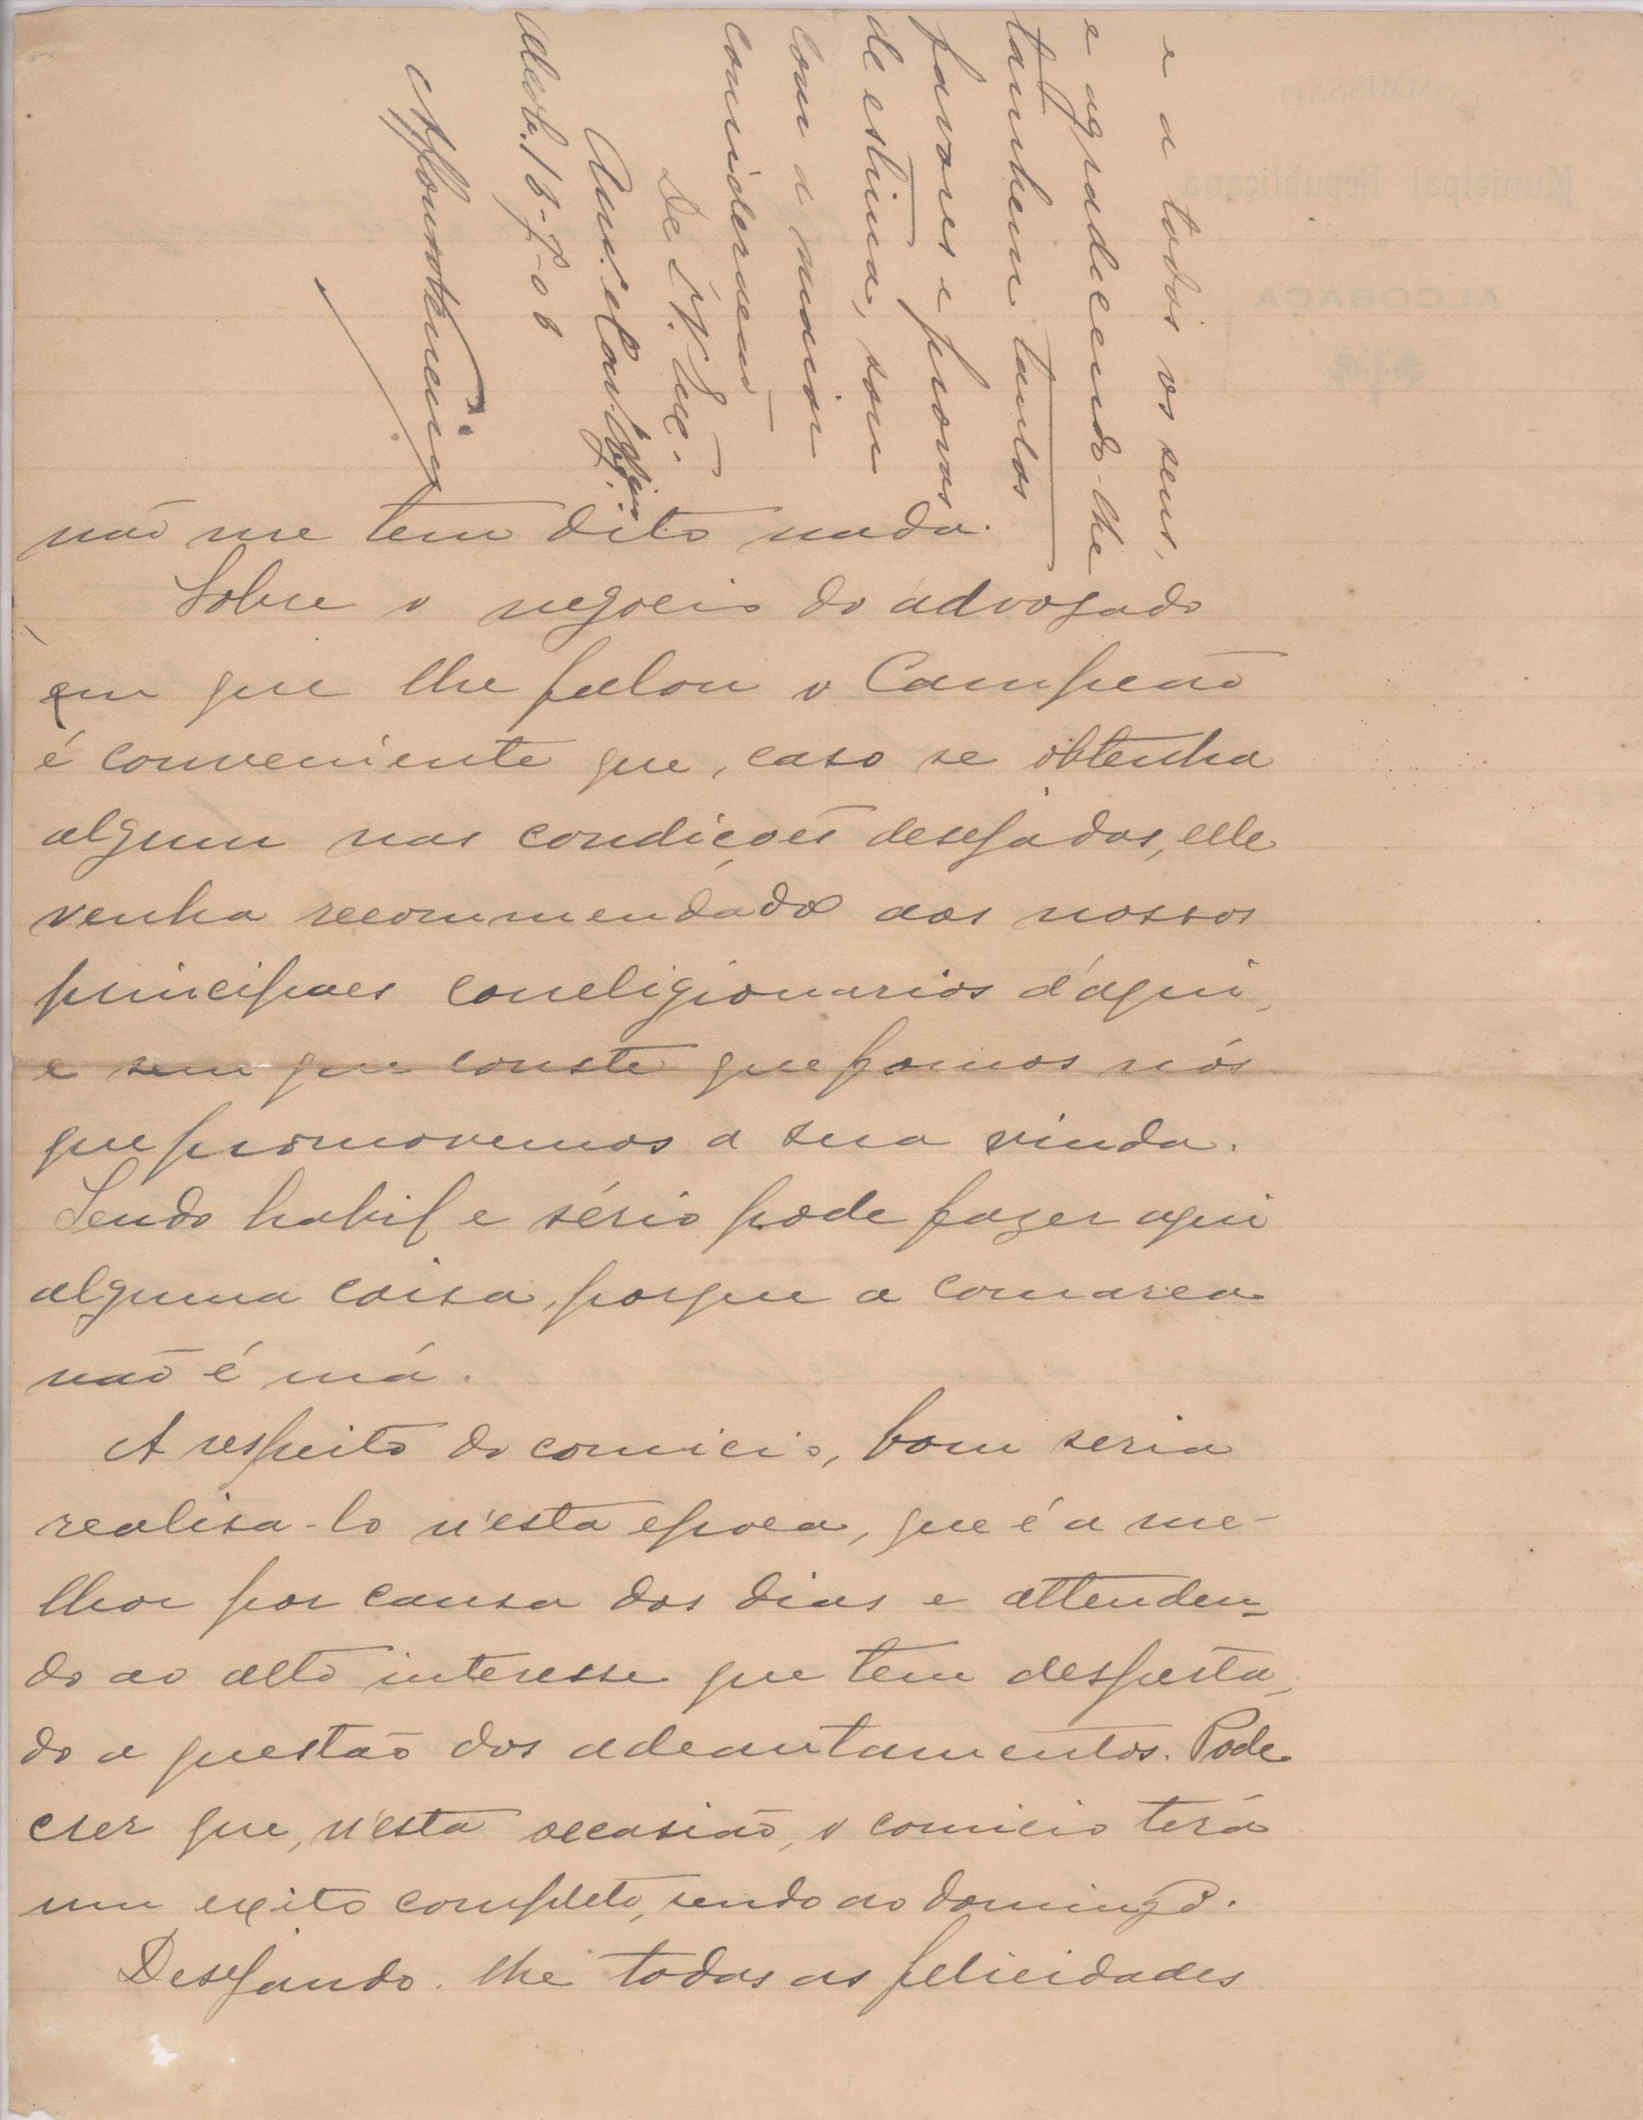 não me tem dito nada.
Sobre o negocio do advogado
em que lhe falou o Campeão
é conveniente que, caso se obtenha
algum nas condições desejadas, elle
venha recommendado aos nossos
principaes correligionarios d'aqui,
e sem que conste que fomos nós
que promovemos a sua vinda.
Sendo habil e sério pode fazer aqui
alguma coisa, porque a comarca
não é má.
A respeito do comicio, bom seria
realisa-lo n'esta epoca, que é a me-
lhor por causa dos dias e attenden-
do ao alto interesse que tem desperta-
do a questão dos adeantamentos. Pode
crer que, n'esta occasião, o comicio terá
um exito completo, sendo ao domingo.
Desejando-lhe todas as felicidades
e a todos os seus,
e agradecendo-lhe
tambem tantos
favores e provas
de estima, sou
com a maior
consideração
De V. Exc.
Am.º e Corr.
Alcob. 18-7-08
Municipal Republicana
ALCOBAÇA